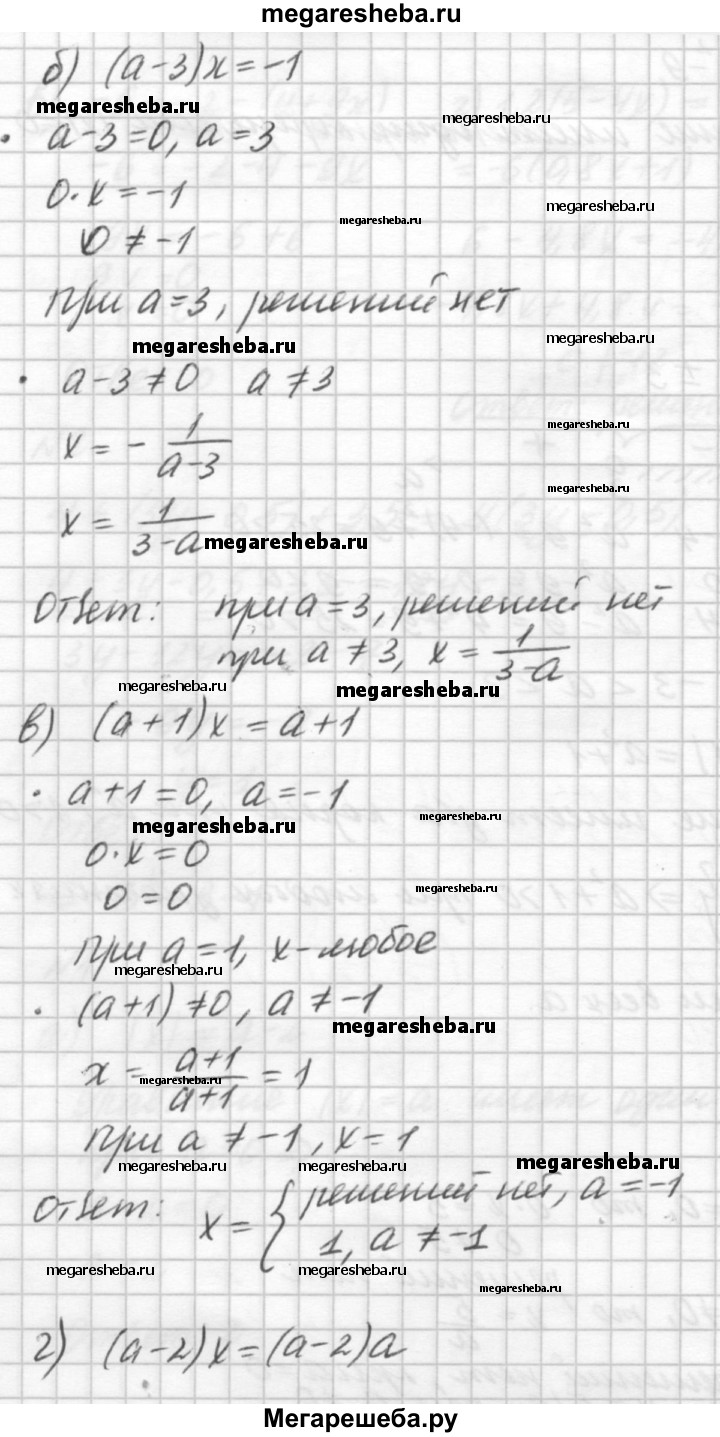 megaresheba.ru
б) (a-3)x=-1
megaresheba.ru
megaresheba.ru
• a-3=0, a=3
0·x=-1
megaresheba.ru
megaresheba.ru
0≠-1
при a=3, решений нет
megaresheba.ru
megaresheba.ru
• a-3≠0 a≠3
x = - 1/(a-3)
megaresheba.ru
megaresheba.ru
x = 1/(3-a)
megaresheba.ru
Ответ: при a=3, решений нет
при a≠3, x = 1/(3-a)
megaresheba.ru
megaresheba.ru
в) (a+1)x=a+1
• a+1=0, a=-1
megaresheba.ru
megaresheba.ru
0·x=0
0=0
megaresheba.ru
при a=1, x-любое
megaresheba.ru
• (a+1)≠0, a≠-1
megaresheba.ru
x = (a+1)/(a+1) = 1
megaresheba.ru
при a≠-1, x=1
megaresheba.ru
megaresheba.ru
megaresheba.ru
Ответ: x = { решений нет, a=-1
1, a≠-1
megaresheba.ru
megaresheba.ru
megaresheba.ru
megaresheba.ru
г) (a-2)x=(a-2)a
Мегарешеба.ру